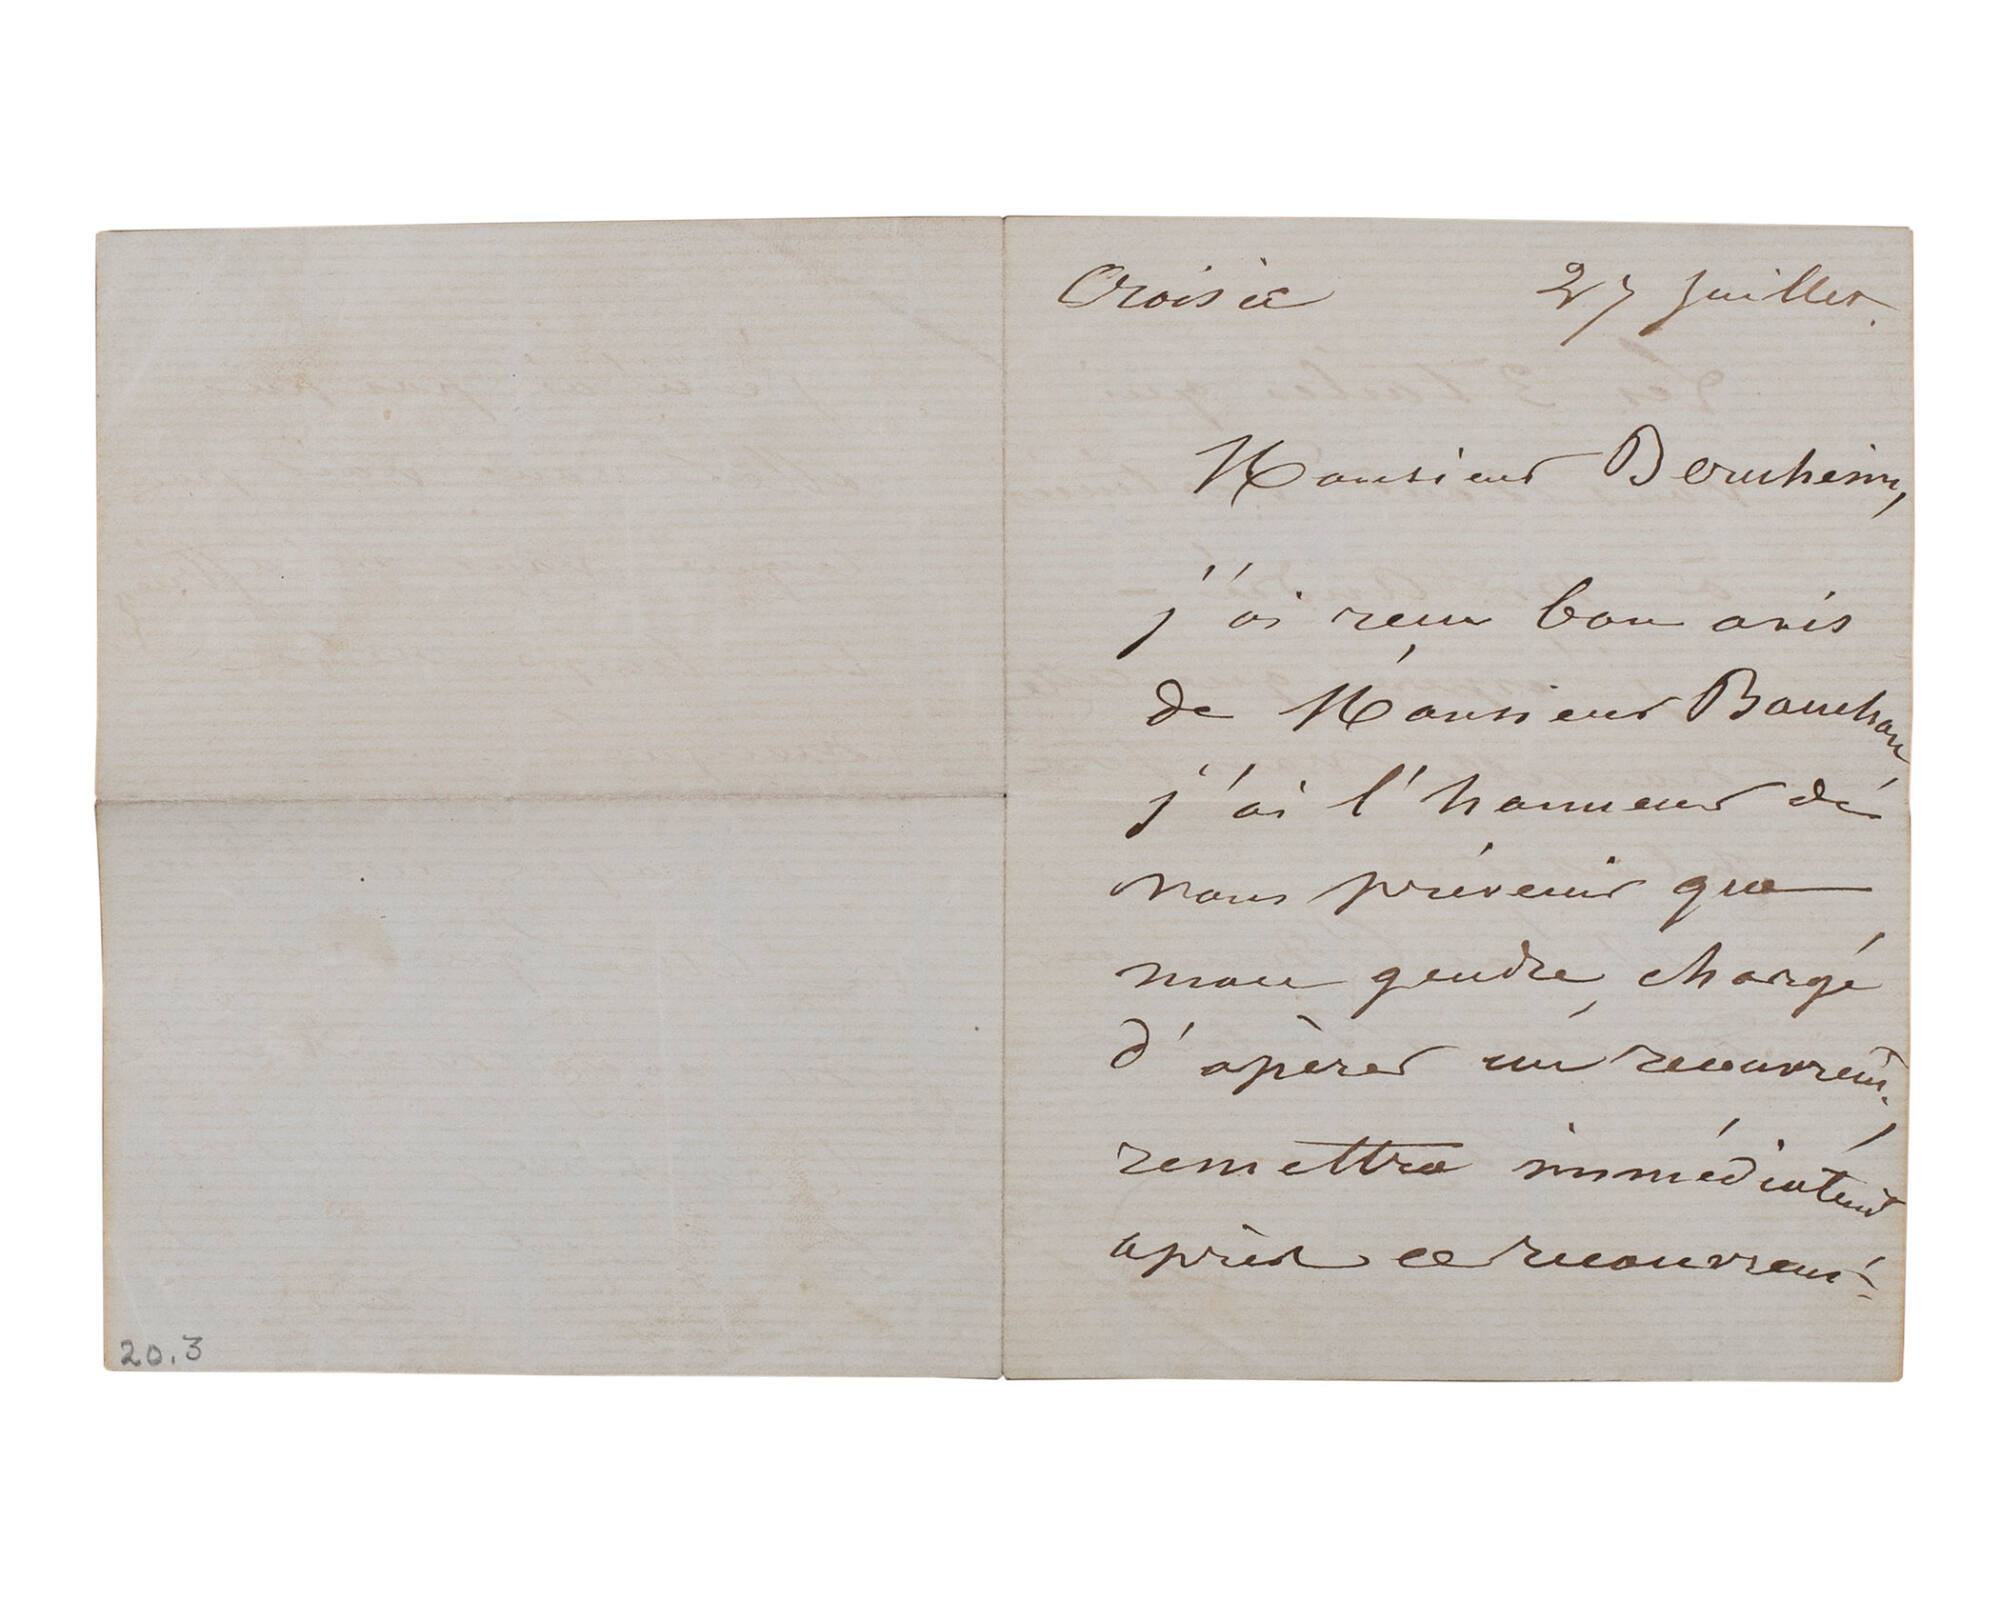 Croisic 27 juillet.
Monsieur Bernheim,
j'ai reçu bon avis
de Monsieur Bauchau
j'ai l'honneur de
vous prévenir que
mon gendre, chargé
d'opérer un recouvremt,
remettra immédiatemt
après ce recouvremt
20.3